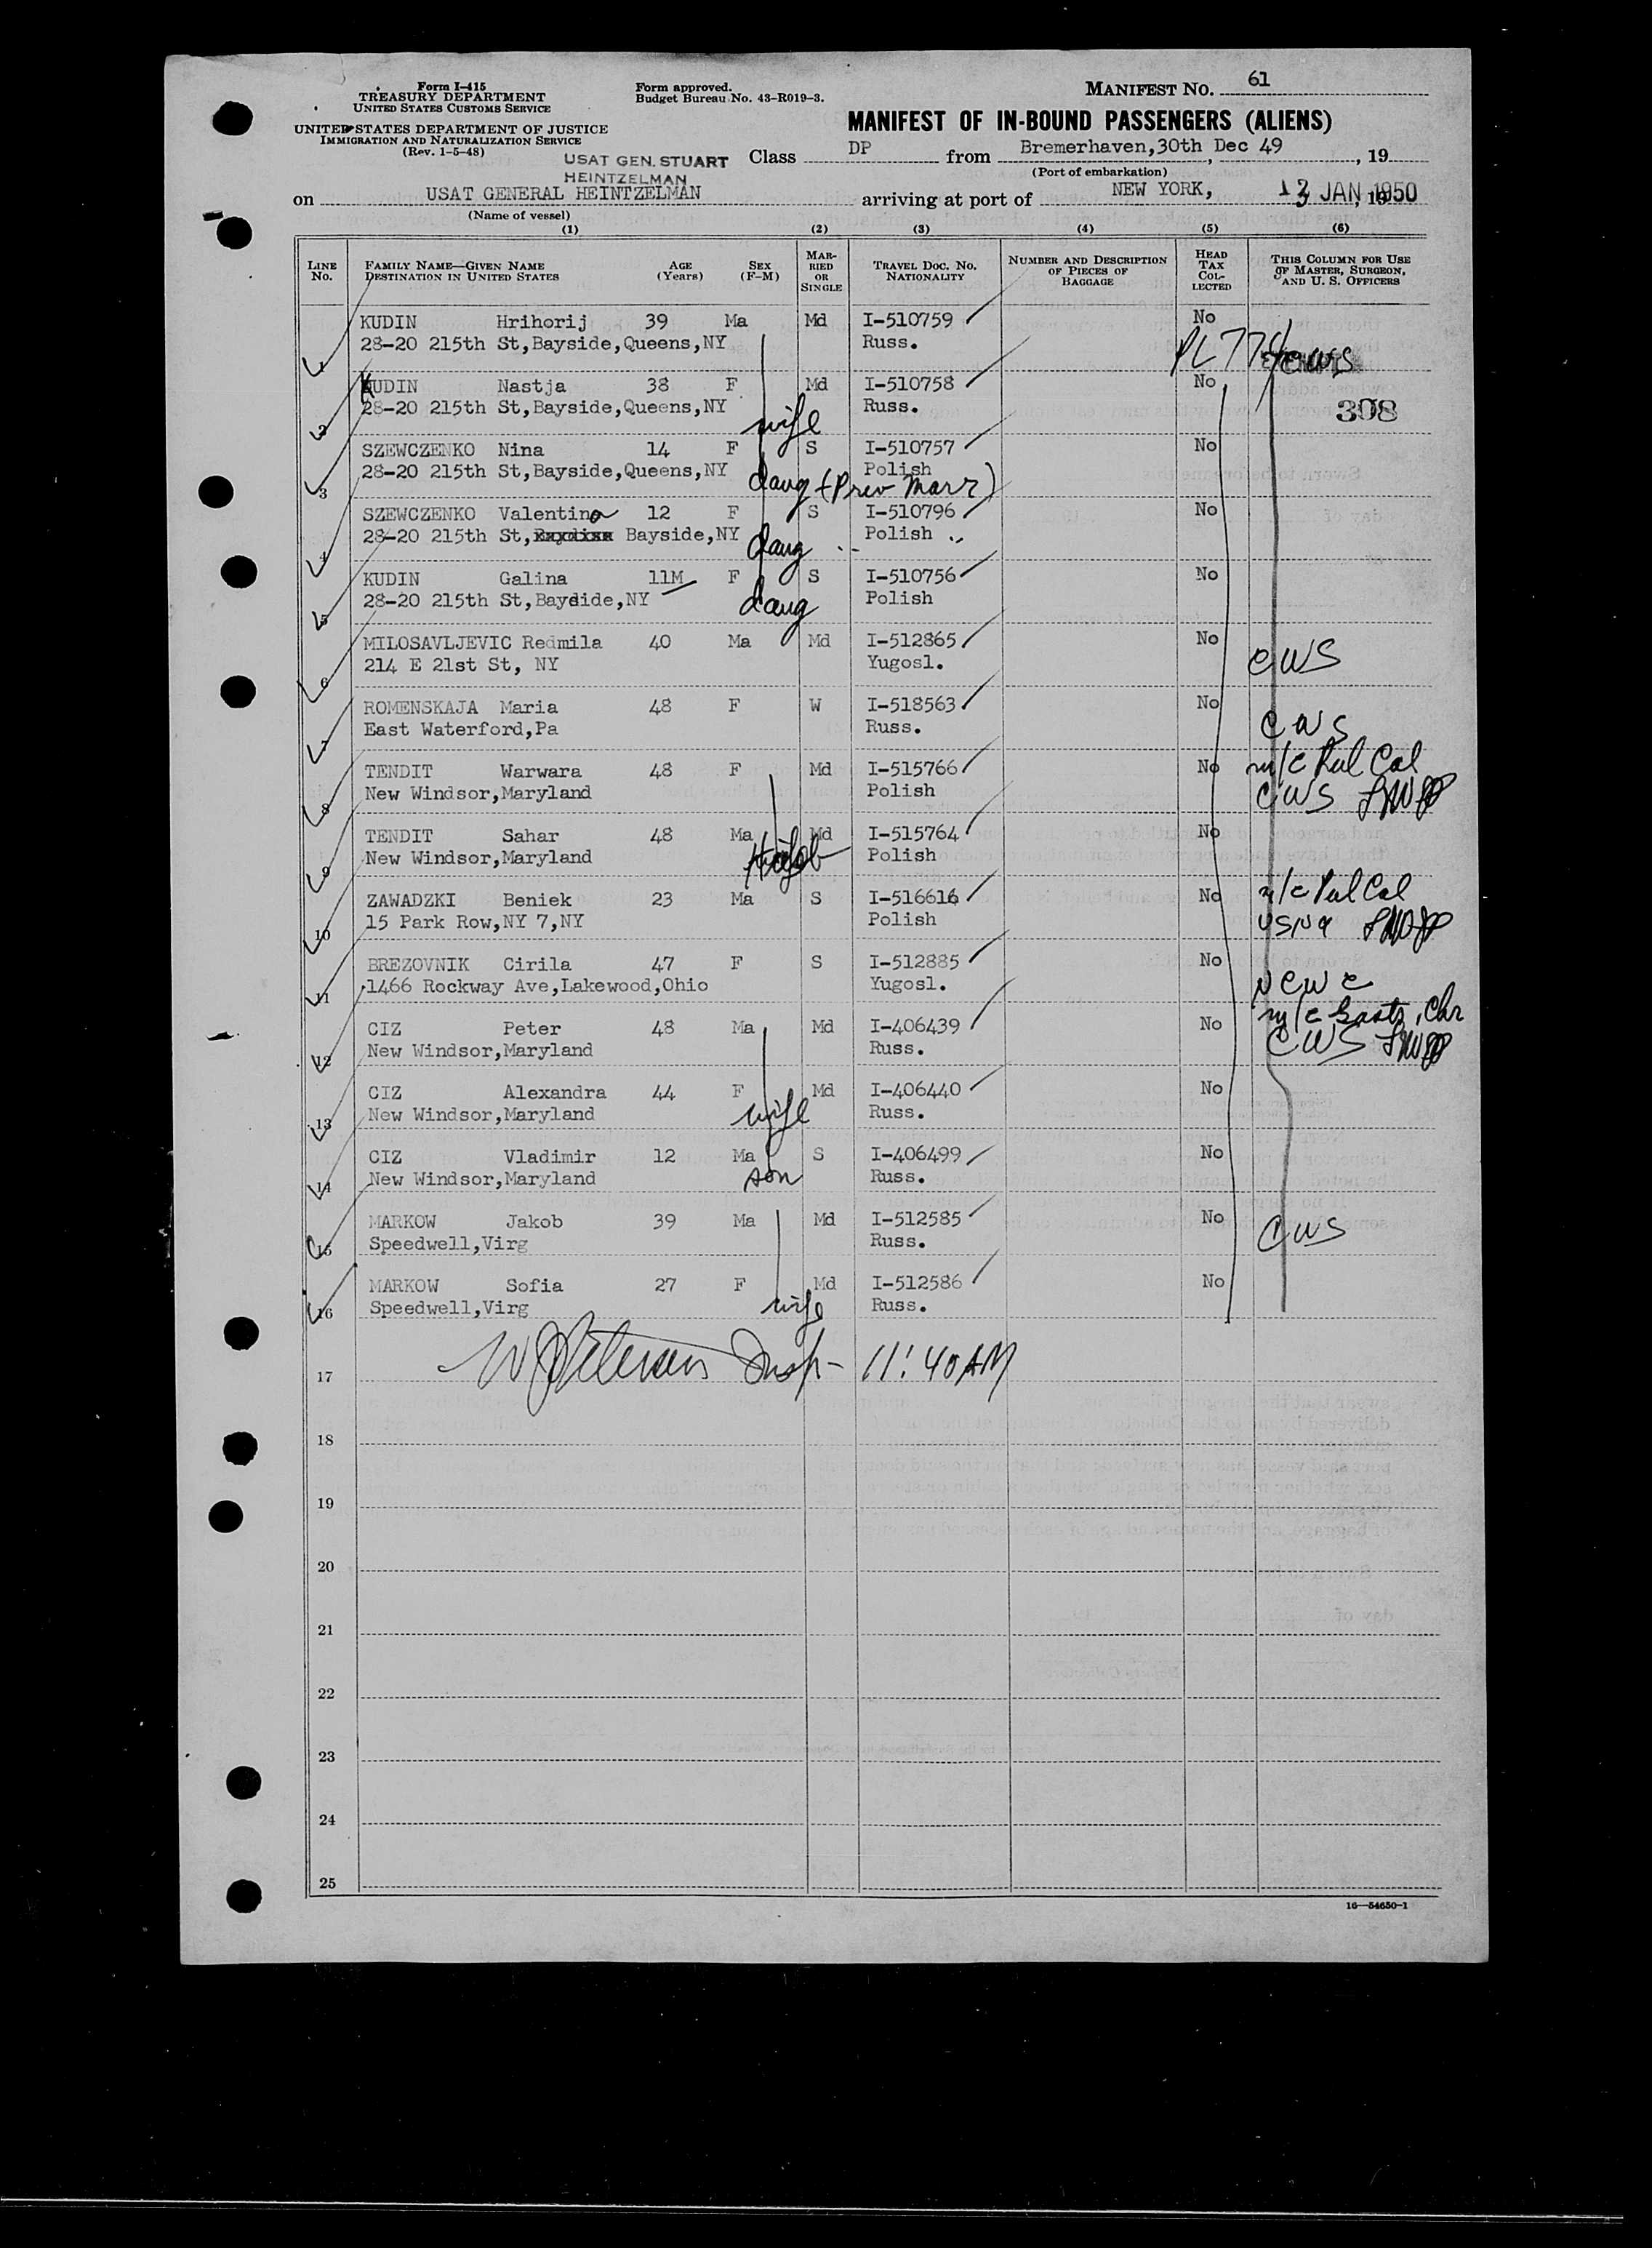 Form I-415
TREASURY DEPARTMENT
UNITED STATES CUSTOMS SERVICE
UNITED STATES DEPARTMENT OF JUSTICE
IMMIGRATION AND NATURALIZATION SERVICE
(Rev. 1-5-48)
Form approved.
Budget Bureau No. 43-R019-3.
MANIFEST NO. 61
MANIFEST OF IN-BOUND PASSENGERS (ALIENS)
USAT GEN. STUART
HEINTZELMAN
Class DP from Bremerhaven,30th Dec 49, 19
(Port of embarkation)
on USAT GENERAL HEINTZELMAN arriving at port of NEW YORK, JAN 1950
(Name of vessel)
(1) (2) (3) (4) (5) (6)
LINE NO. FAMILY NAME—GIVEN NAME DESTINATION IN UNITED STATES AGE (Years) SEX (F-M) MARRIED OR SINGLE TRAVEL DOC. NO. NATIONALITY NUMBER AND DESCRIPTION OF PIECES OF BAGGAGE HEAD TAX COLLECTED THIS COLUMN FOR USE OF MASTER, SURGEON, AND U. S. OFFICERS
KUDIN Hrihorij 39 Ma Md I-510759 No
28-20 215th St,Bayside,Queens,NY Russ. PL 774 CWS
KUDIN Nastja 38 F Md I-510758 No
28-20 215th St,Bayside,Queens,NY wife Russ. 308
SZEWCZENKO Nina 14 F S I-510757 No
3 28-20 215th St,Bayside,Queens,NY daug (Prev Marr) Polish
SZEWCZENKO Valentina 12 F S I-510796 No
4 28-20 215th St, Bayside,NY daug Polish
KUDIN Galina 11M F S I-510756 No
5 28-20 215th St,Baydide,NY daug Polish
MILOSAVLJEVIC Redmila 40 Ma Md I-512865 No
6 214 E 21st St, NY Yugosl. CWS
ROMENSKAJA Maria 48 F W I-518563 No
7 East Waterford,Pa Russ. CWS
TENDIT Warwara 48 F Md I-515766 No m/c Pul Cal
8 New Windsor,Maryland Polish CWS
TENDIT Sahar 48 Ma Md I-515764 No
9 New Windsor,Maryland Polish
ZAWADZKI Beniek 23 Ma S I-516616 No m/c Pul Cal
10 15 Park Row,NY 7,NY Polish USNA
BREZOVNIK Cirila 47 F S I-512885 No
11 1466 Rockway Ave,Lakewood,Ohio Yugosl. NCWC
CIZ Peter 48 Ma Md I-406439 No m/c
12 New Windsor,Maryland Russ. CWS
CIZ Alexandra 44 F Md I-406440 No
13 New Windsor,Maryland wife Russ.
CIZ Vladimir 12 Ma S I-406499 No
14 New Windsor,Maryland son Russ.
MARKOW Jakob 39 Ma Md I-512585 No
15 Speedwell,Virg Russ. CWS
MARKOW Sofia 27 F Md I-512586 No
16 Speedwell,Virg wife Russ.
17 Insp- 11:40 AM
18
19
20
21
22
23
24
25
16—54650-1